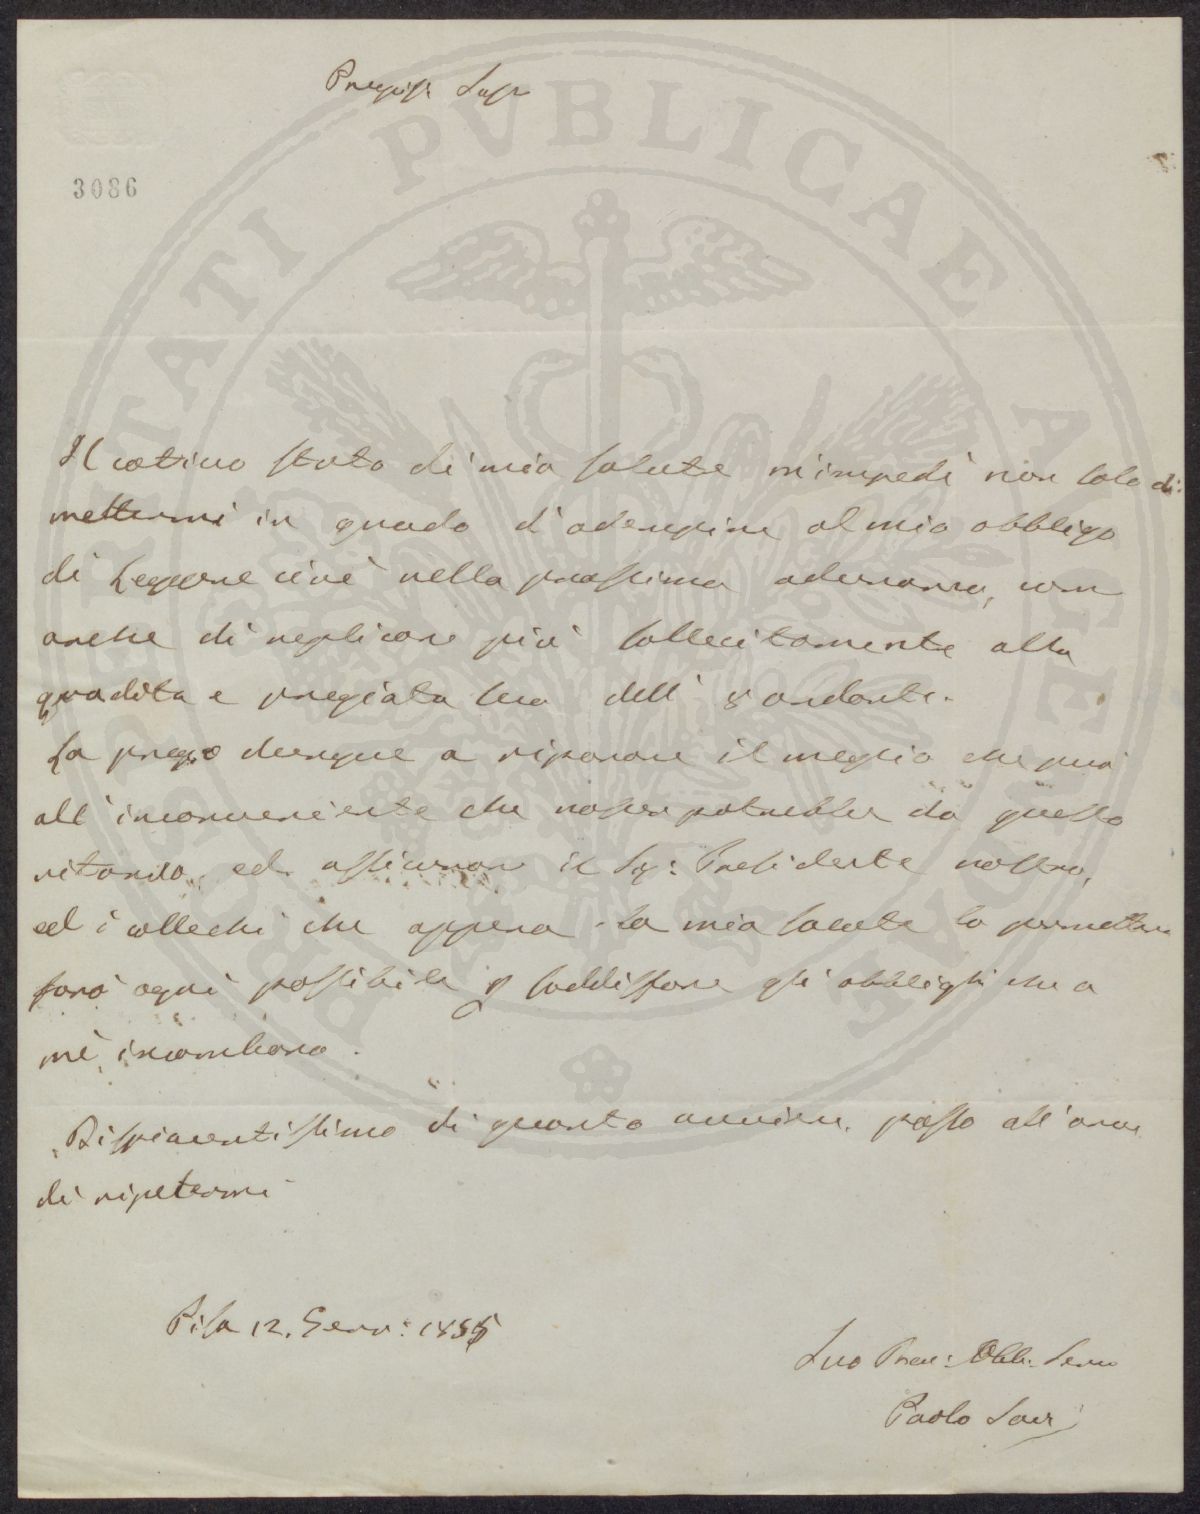 Pregiss: Sigr
3086
PROSPERITATI PVBLICAE AVGENDAE
Il cattivo stato di mia salute m'impedì non solo di
mettermi in grado d'adempire al mio obbligo
di Leggere cioè nella prossima adunanza, come
anche di replicare più sollecitamente alla
gradita e pregiata sua dell' 8 andante.
La prego dunque a riparare il meglio che può
all'inconveniente che nascer potrebbe da questo
ritardo, ed assicurare il Sig: Presidente nostro,
ed i colleghi che appena la mia salute lo permetta
farò ogni possibile p soddisfare gli obblighi che a
me incombano.
Dispiacentissimo di quanto avviene, passo all'onore
di ripetermi
Pisa 12. Genn: 1855
Suo Dev: Obb: Servo
Paolo Savi